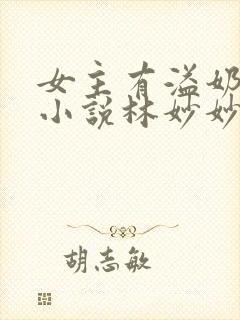 女主有溢奶
小说林妙妙
胡志敏